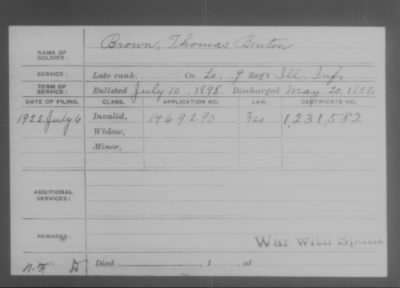 NAME OF SOLDIER: Brown, Thomas Benton
SERVICE: Late rank, Co. L, 9 Reg't Ill. Inf.
TERM OF SERVICE: Enlisted July 10, 1898 Discharged May 20, 1899.
DATE OF FILING. CLASS. APPLICATION NO. LAW. CERTIFICATE NO.
1922 July 6 Invalid, 1469290 1,231,582
Widow,
Minor,
ADDITIONAL SERVICES:
REMARKS: War with Spain
Died , 1 , at